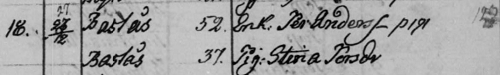 18. 27/12 Bastås 52. Enk. Per Anders
Bastås 37. Pig. Stina Persdr